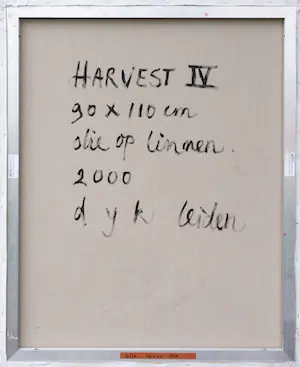 HARVEST IV
90 x 110 cm
olie op linnen.
2000
d y k leiden